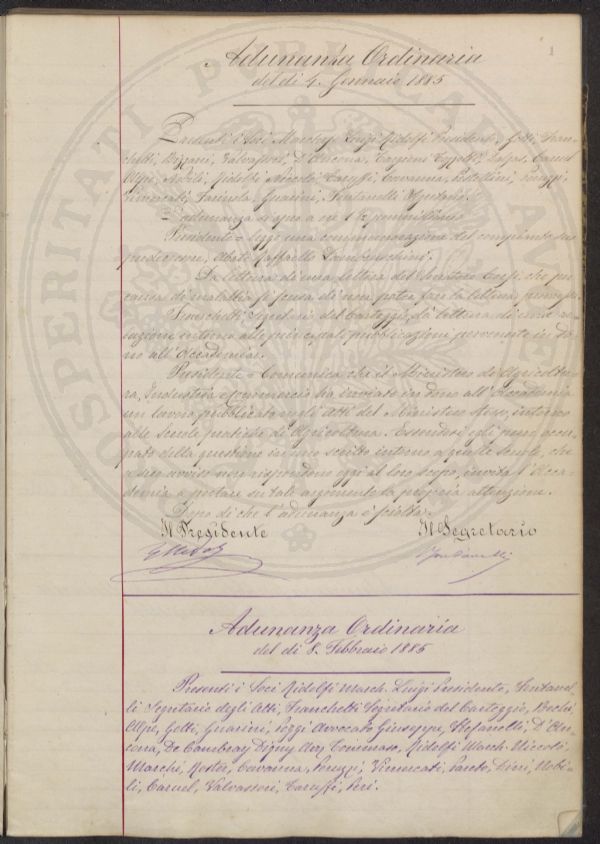 1
Adunanza Ordinaria
del dì 4. Gennaio 1885
Presenti i Soci March. Luigi Ridolfi Presidente, Gotti, Fran-
chetti, Bizzarri, Valvassori, D'Ancona, Targioni Tozzetti, Caruel
Alpe, Nobili, Ridolfi Niccolò, Caruffi, Cavanna, Peruzzi,
Vimercati, Farinola, Guarini, Fontanelli Segretario.
adunanza si apre a ore 1 1/2 pomeridiane
Presidente = legge una commemorazione del compianto suo
predecessore, Abate Raffaello Lambruschini.
Dà lettura di una lettera del che per
causa di malattia si scusa di non poter fare la lettura promessa.
Franchetti Segretario del Carteggio, dà lettura di una re-
lazione intorno alle principali pubblicazioni pervenute in do-
no all'Accademia.
Presidente = Comunica che il Ministero di Agricoltu-
ra, Industria e Commercio ha inviato in dono all'Accademia
un lavoro pubblicato negli Atti del Ministero stesso, intorno
alle Scuole pratiche di Agricoltura. Essendosi egli pure occu-
pato della questione in uno scritto intorno a quelle Scuole, che
a suo avviso non rispondono oggi al loro scopo, invita l'Acca-
demia a portare su tale argomento la propria attenzione.
Dopo di che l'adunanza è sciolta.
Il Presidente Il Segretario
Fontanelli
Adunanza Ordinaria
del dì 8. Febbraio 1885
Presenti i Soci Ridolfi March. Luigi Presidente, Fontanel-
li Segretario degli Atti, Franchetti Segretario del Carteggio, Bechi
Alpe, Gotti, Guarini, Poggi Avvocato Giuseppe, Stefanelli, D'An-
cona, De Cambray Digny Avv. Tommaso, Ridolfi March. Niccolò,
Marchi, Roster, Cavanna, Peruzzi, Vimercati, Pareto, Dini, Nobi-
li, Caruel, Valvassori, Caruffi, Peri.
PROSPERITATI PUBLICAE AUGENDAE